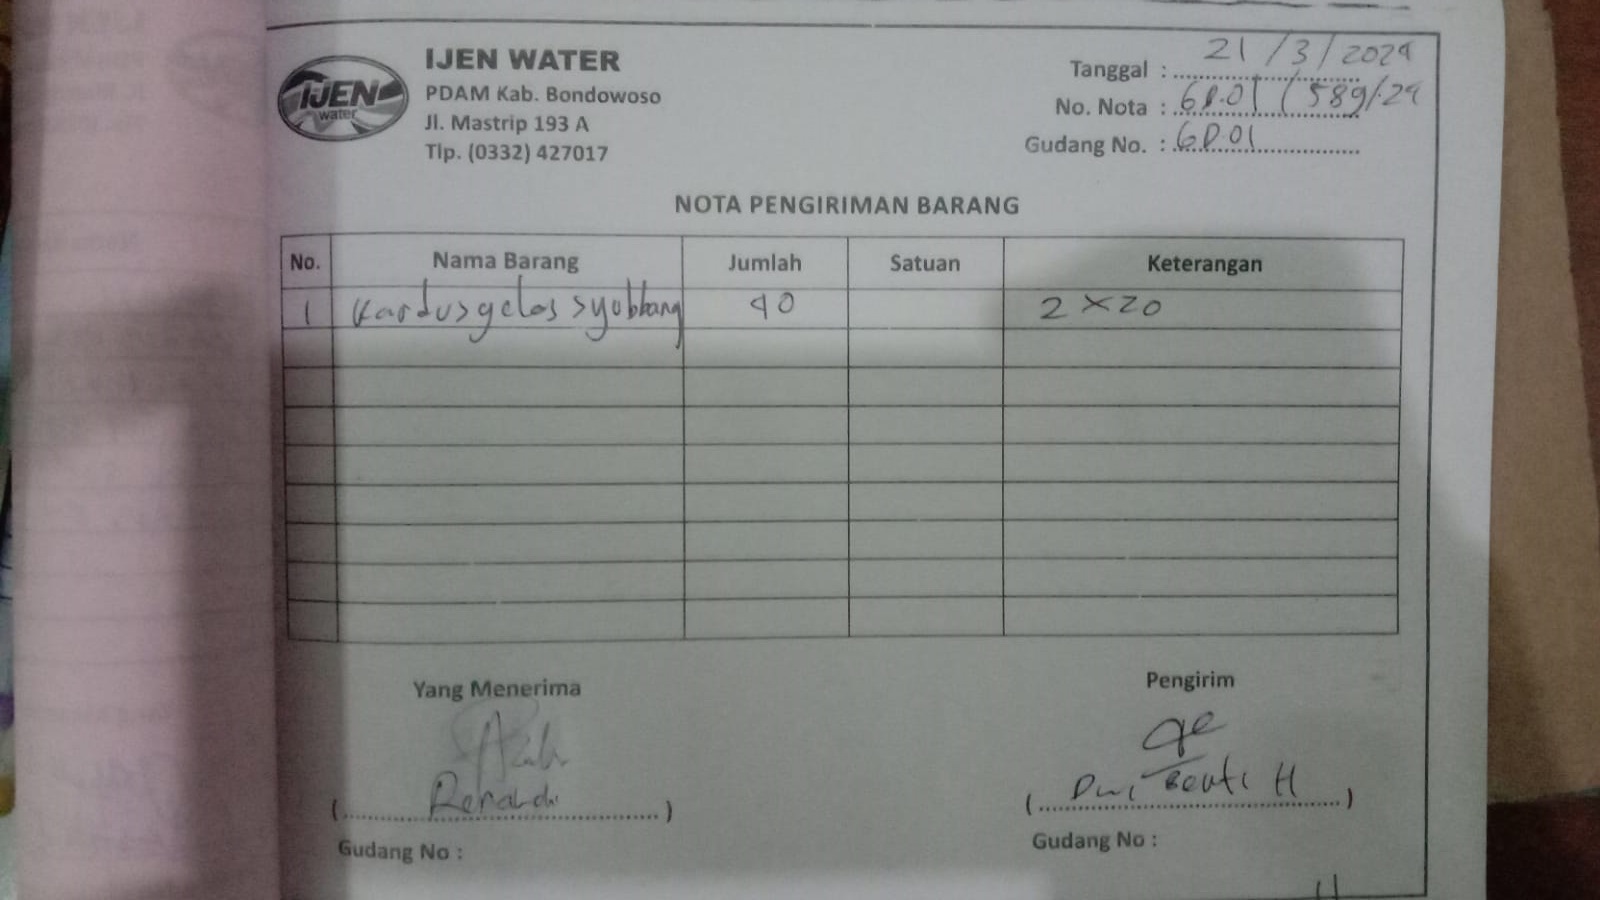 IJEN
water
IJEN WATER
PDAM Kab. Bondowoso
Jl. Mastrip 193 A
Tlp. (0332) 427017
Tanggal : 21/3/2024
No. Nota : GD.01/589/24
Gudang No. : GD.01
NOTA PENGIRIMAN BARANG
No. Nama Barang Jumlah Satuan Keterangan
1 Kardus gelas syubbang 40 2 x 20
Yang Menerima
Pengirim
(Renaldi)
(Dwi H)
Gudang No :
Gudang No :